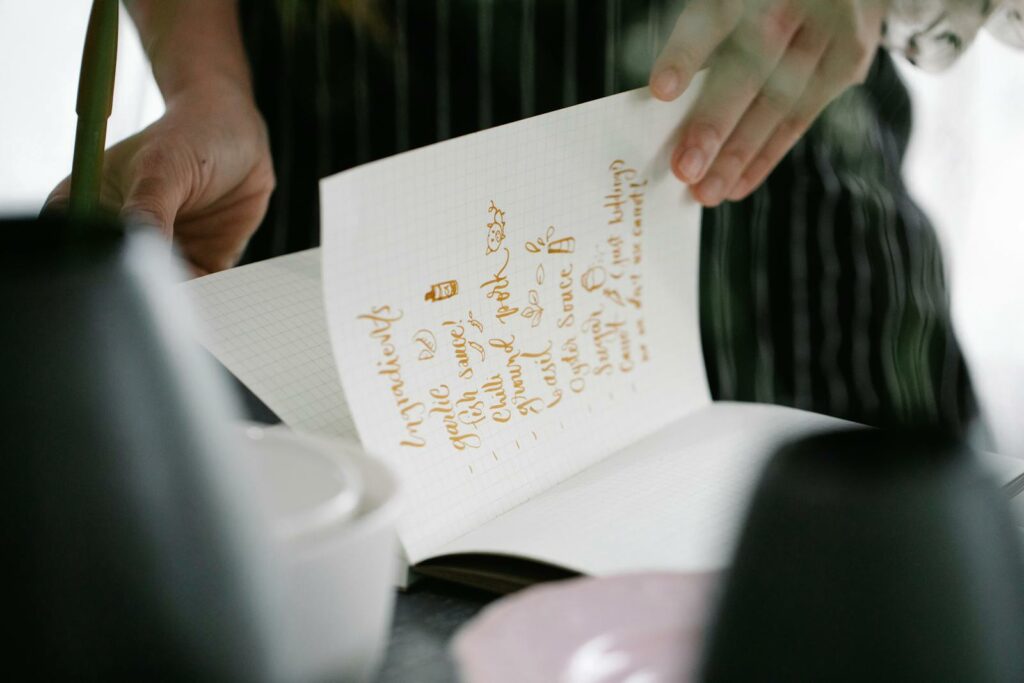 Ingredients
- garlic
- fish sauce!
- Chilli
- ground pork
- basil
- Oyster Sauce
- Sugar
- Carrot (just kidding,
no we don't use carrot)